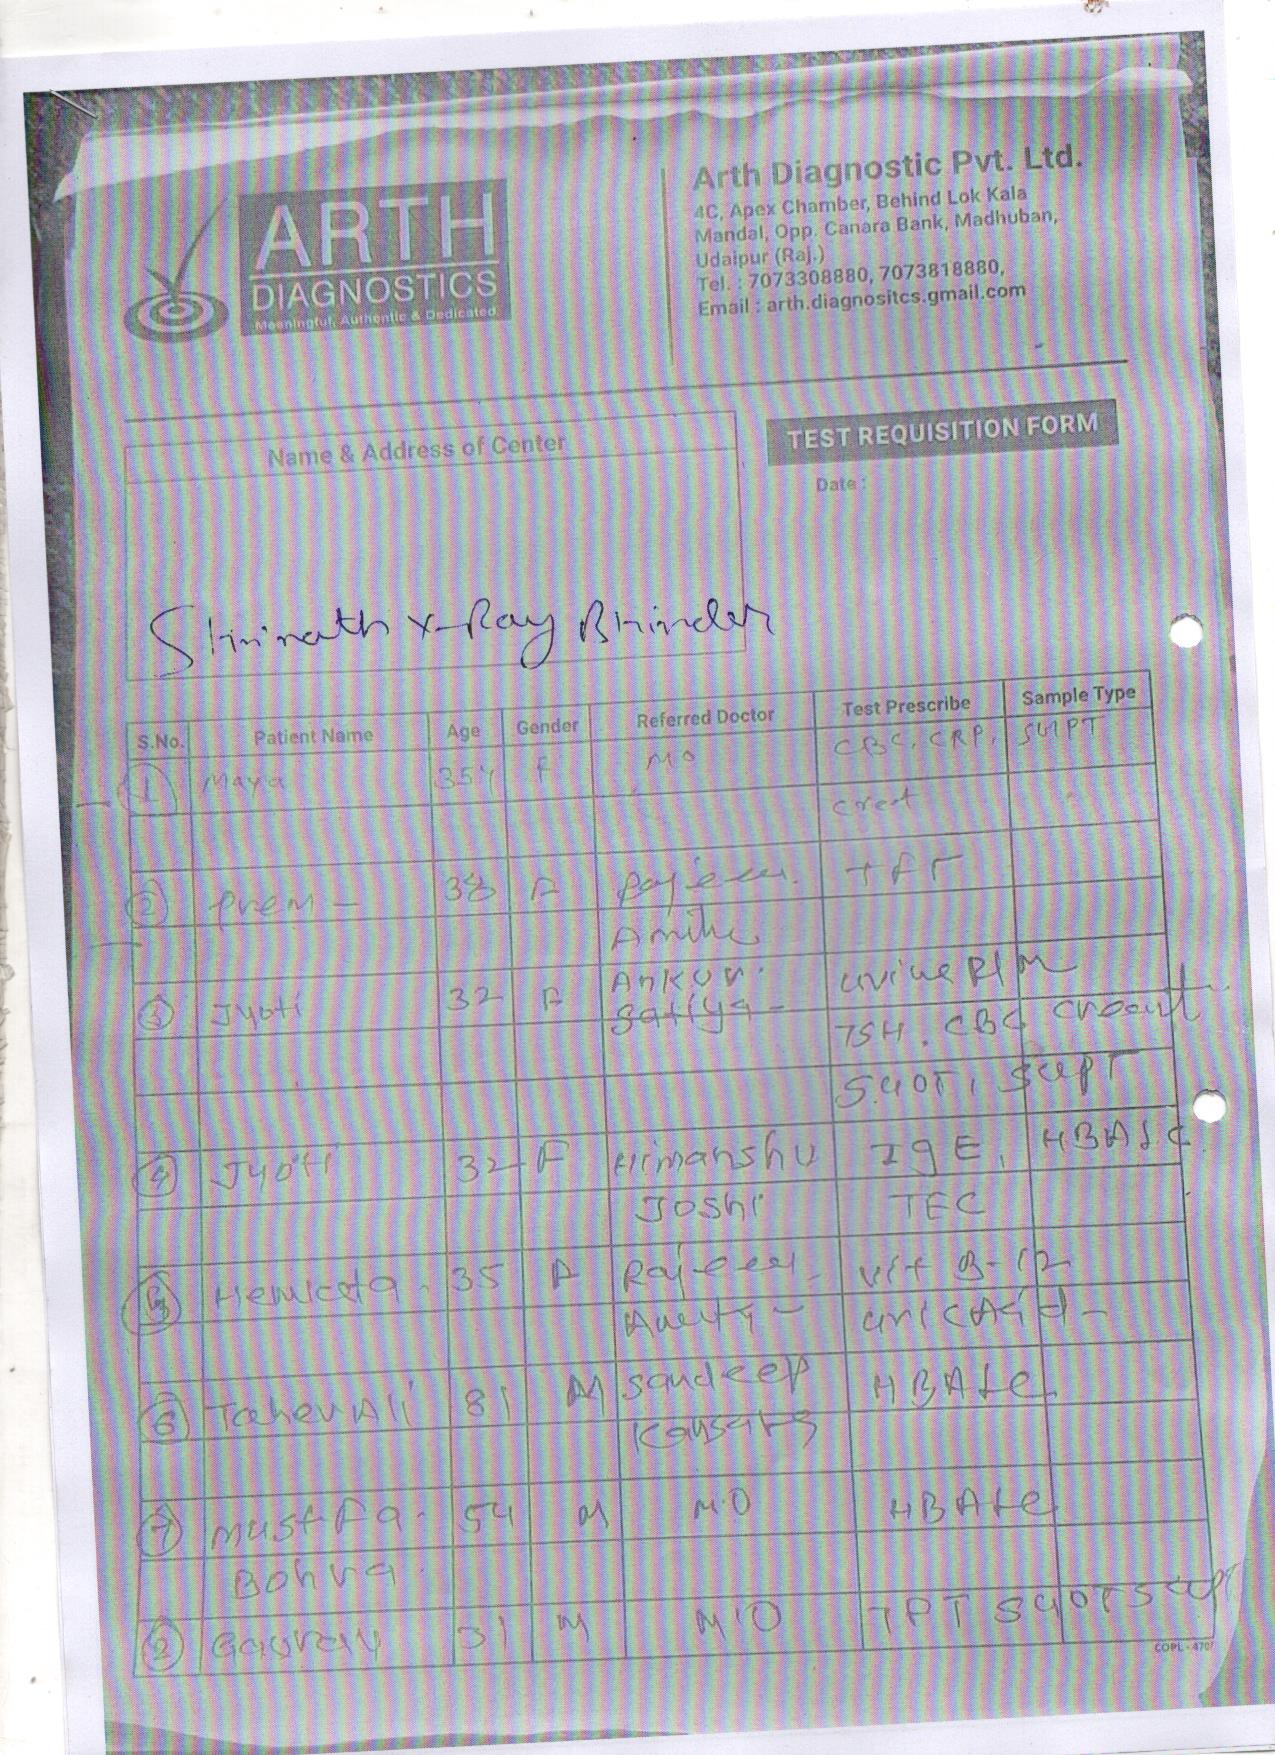 ARTH
DIAGNOSTICS
Meaningful, Authentic & Dedicated
Arth Diagnostic Pvt. Ltd.
4C, Apex Chamber, Behind Lok Kala
Mandal, Opp. Canara Bank, Madhuban,
Udaipur (Raj.)
Tel. : 7073308880, 7073818880,
Email : arth.diagnositcs.gmail.com
Name & Address of Center
TEST REQUISITION FORM
Date :
Shrinath X-Ray Bhinder
S.No. Patient Name Age Gender Referred Doctor Test Prescribe Sample Type
1 Maya 35y F MO CBC, CRP, SGPT
creat
2 Prem - 38 F Rajeev TFT
3 Jyoti 32 F Ankur urine R/M
TSH. CBC creat
SGOT, SGPT
4 Jyoti 32 F Himanshu IgE, HBA1C
Joshi TEC
5 Hemlata 35 F Rajeev vit B-12
uric Acid -
6 Taher Ali 81 M Sandeep HBA1c
7 Mustfa 54 M M.O HBA1c
Bohra
8 Gaurav 31 M M'O SGOT SGPT
COPL - 4707